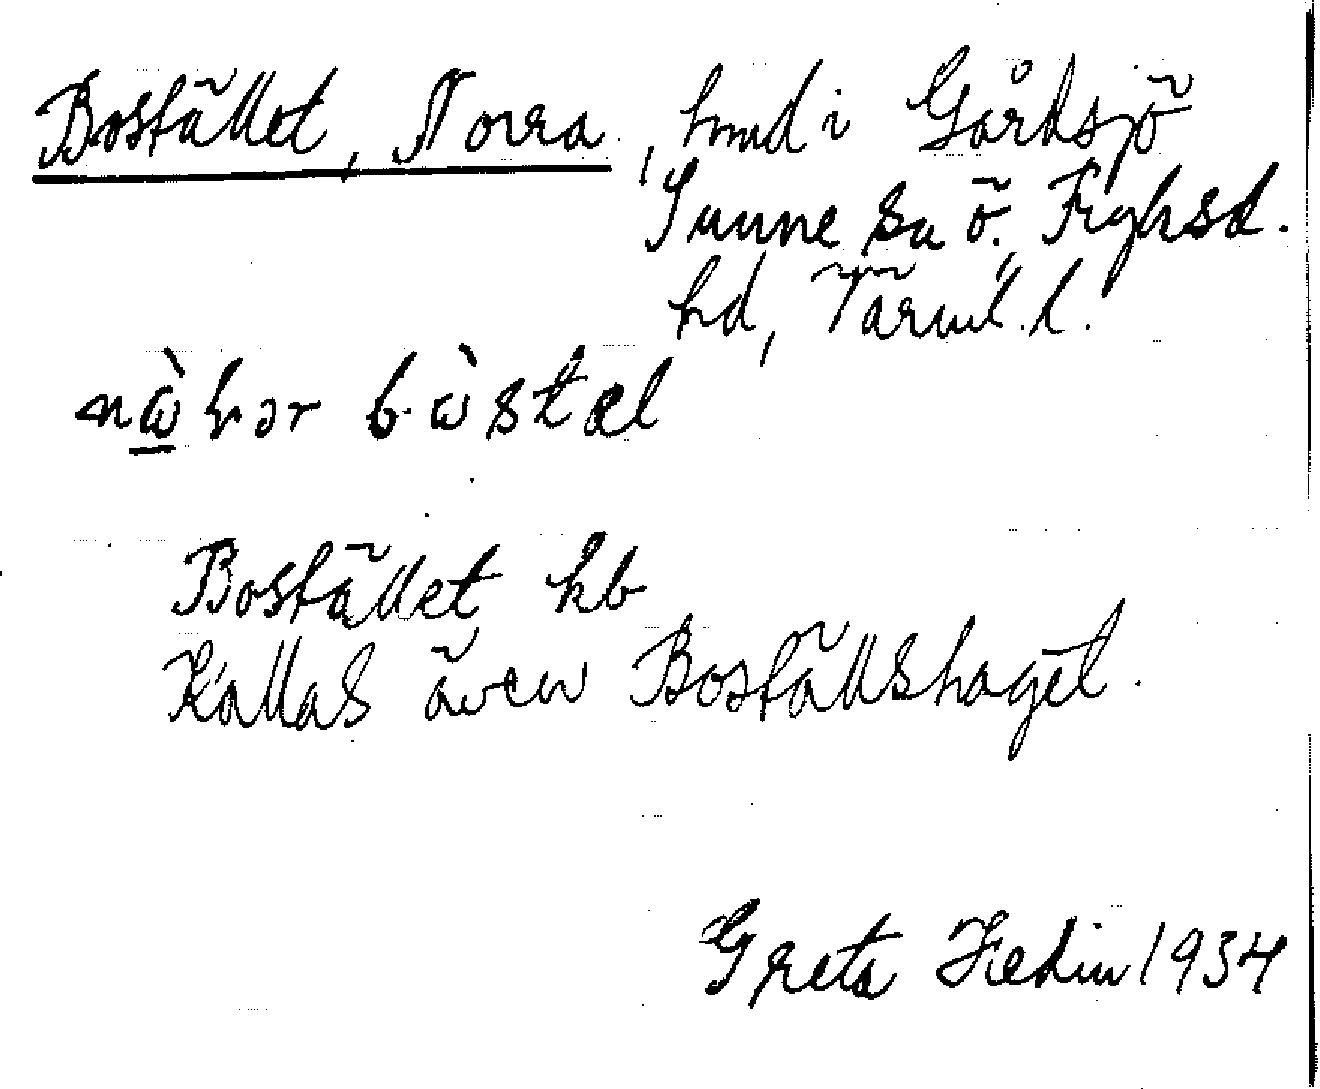 Bostället, Norra, hmd i Gårdsjö
Sunne sn Ö. Fryksd.
hd, Värml. l.
Bostället kb
Kallas även Boställshaget.
Greta Hedin 1934